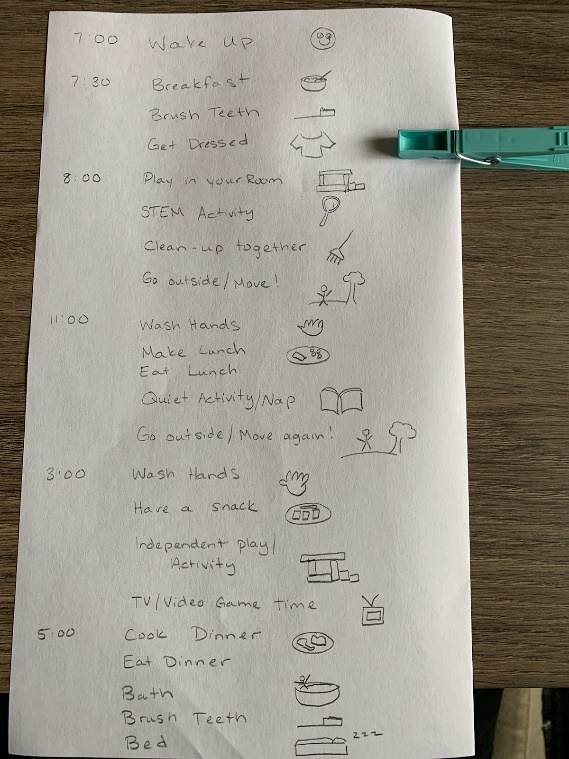 7:00 Wake Up
7:30 Breakfast
Brush Teeth
Get Dressed
8:00 Play in your Room
STEM Activity
Clean-up together
Go outside/Move!
11:00 Wash Hands
Make Lunch
Eat Lunch
Quiet Activity/Nap
Go outside/Move again!
3:00 Wash Hands
Have a snack
Independent play/
Activity
TV/Video Game Time
5:00 Cook Dinner
Eat Dinner
Bath
Brush Teeth
Bed zzz